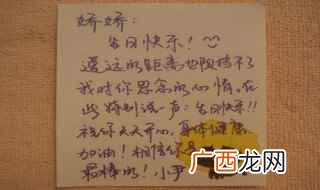 娇娇:
生日快乐!
遥远的距离也阻挡不了
我对你思念的心情,在
此特别说一声:生日快乐!!
祝你天天开心,身体健康
加油!相信你是
最棒的!小尹
广西龙网